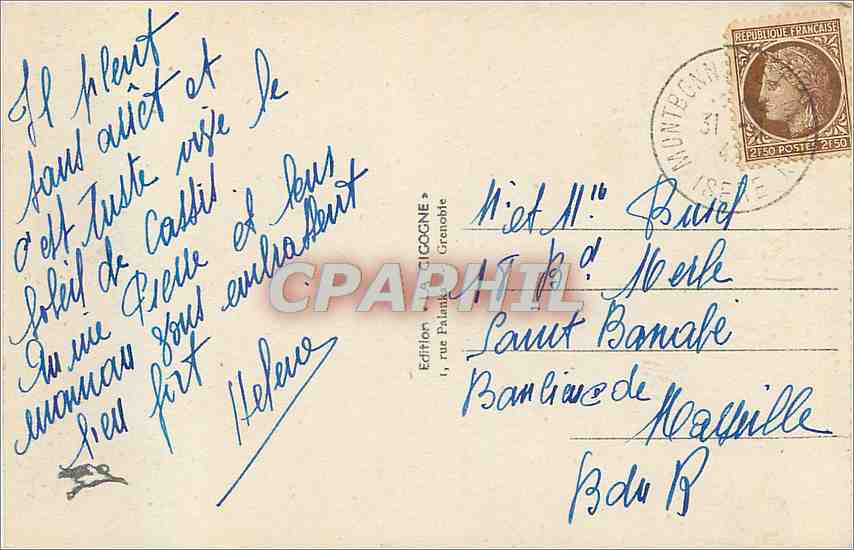 Il pleut
sans arrêt et
c'est triste vive le
soleil de Cassis
Pierre et leurs
maman vous embrassent
bien fort
Helene
Edition « LA CIGOGNE »
1, rue Palanka Grenoble
CPAPHIL
REPUBLIQUE FRANÇAISE
2F,50 POSTES 2F,50
MONTBONN
31
Mr et Mlle
17 Bd Merle
Saint Barnabé
Banlieue de
Marseille
B du R